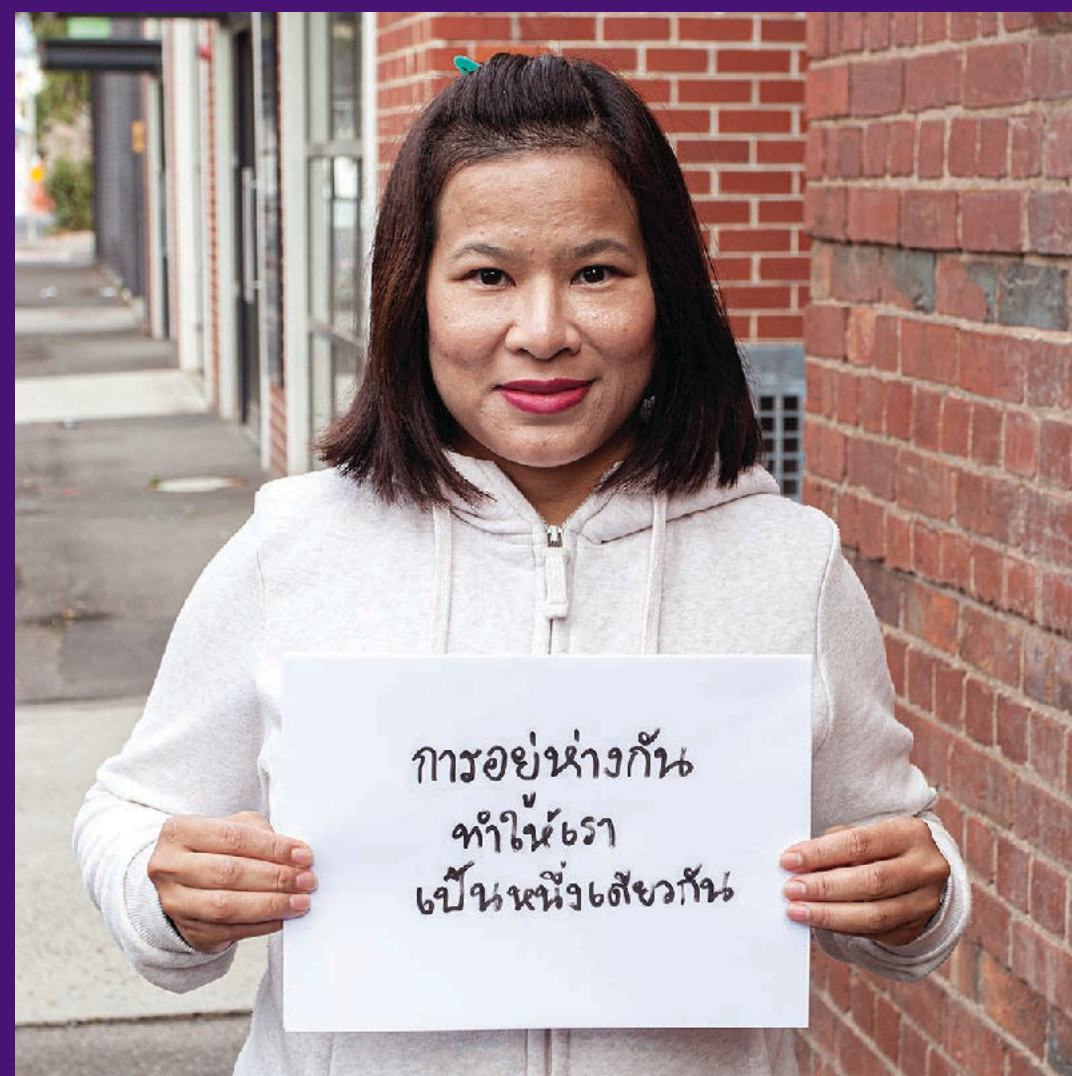 การอยู่ห่างกัน
ทำให้เรา
เป็นหนึ่งเดียวกัน